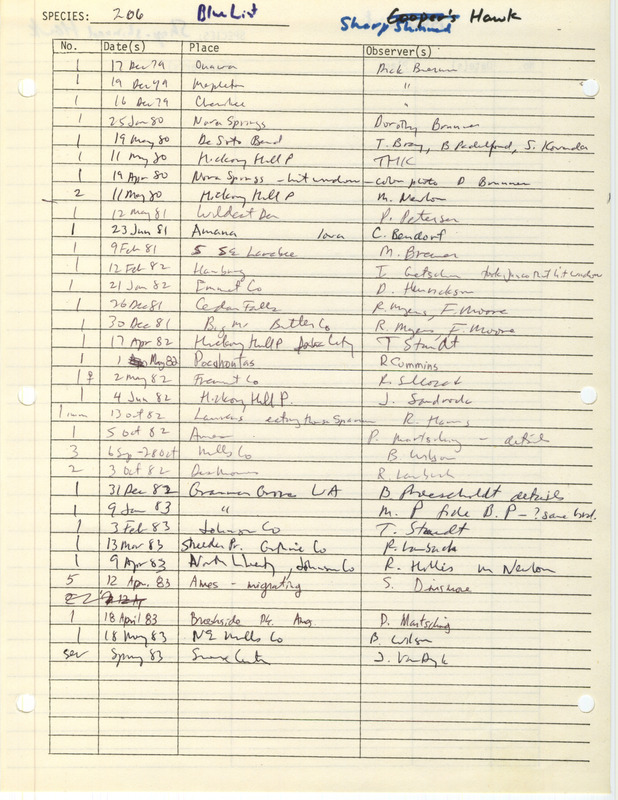 SPECIES: 206 Blue List Cooper's Hawk
Sharp Shinned
No. Date(s) Place Observer(s)
1 17 Dec 79 Onawa Dick Brown
1 19 Dec 79 Mapleton "
1 16 Dec 79 Cherokee "
1 25 Jan 80 Nora Springs Dorothy Brunner
1 19 May 80 De Soto Bend T. Bray, B Padelford, S. Kovanda
1 11 May 80 Hickory Hill P THK
1 19 Apr 80 Nora Springs - hit window - color photo D Brunner
2 11 May 80 Hickory Hill P M. Newlon
1 12 May 81 Wildcat Den P. Petersen
1 23 Jan 81 Amana Iowa C. Bendorf
1 9 Feb 81 5 SE Larrabee M. Brewer
1 12 Feb 82 Hamburg I Getscher took junco hit window
1 21 Jan 82 Emmet Co D. Henrickson
1 26 Dec 81 Cedar Falls R. Myers, F. Moore
1 30 Dec 81 Big M Butler Co R. Myers F. Moore
1 17 Apr 82 Hickory Hill P T Staudt
1 1 May 82 Pocahontas R Cummins
1 ♀ 2 May 82 Fremont Co R. Silcock
1 4 Jun 82 Hickory Hill P. J. Sandrock
1 imm 13 Oct 82 Laurens eating House Sparrow R. Harms
1 5 Oct 82 Ames P. Martsching - details
3 6 Sep - 28 Oct Mills Co B. Wilson
2 3 Oct 82 Des Moines R. Laubach
1 31 Dec 82 Grammer Grove WA B. Proescholdt details
1 9 Jan 83 " M. P fide B. P - ? same bird.
1 3 Feb 83 Johnson Co T. Staudt
1 13 Mar 83 Sheeder Pr. Guthrie Co R. Laubach
1 9 Apr 83 North Liberty, Johnson Co R. Hollis M Newlon
5 12 Apr. 83 Ames - migrating S. Dinsmore
1 18 April 83 Brookside Pk. Ames D. Martsching
1 18 May 83 NE Mills Co B. Wilson
sev Spring 83 Sioux Center J. Van Dyk